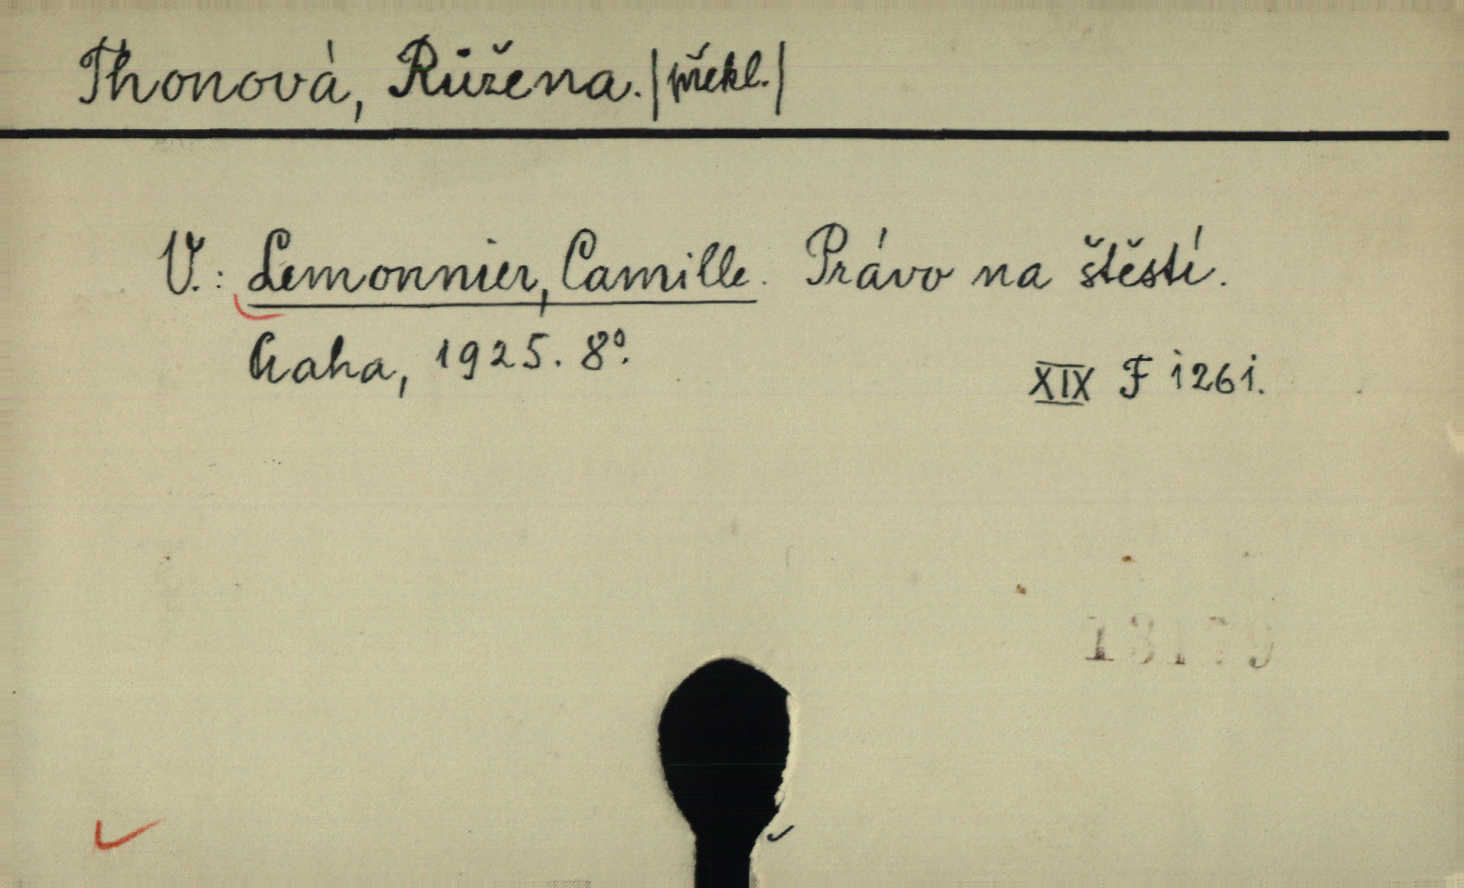 Thonová, Růžena. |překl.|
V.: Lemonnier, Camille. Právo na štěstí.
Praha, 1925. 8°.
XIX F 1261.